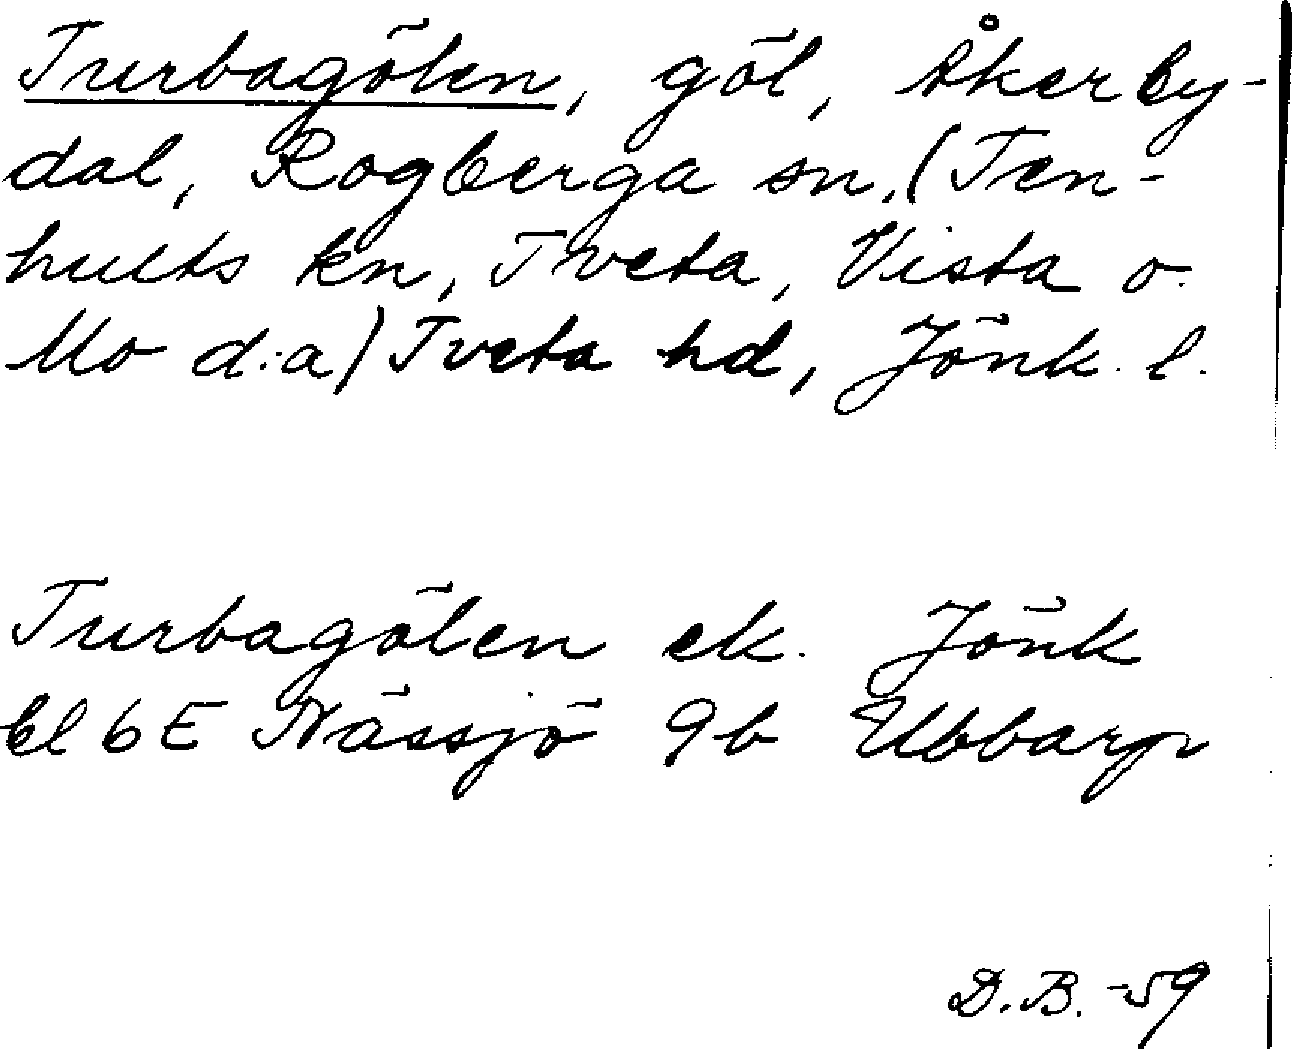 Turbagölen, göl, Åkerby-
dal, Rogberga sn, (Ten-
hults kn, Tveta, Vista o.
Mo d:a) Tveta hd, Jönk. l.
Turbagölen ek. Jönk
bl 6E Nässjö 9b Ubbarp
D.B. -59